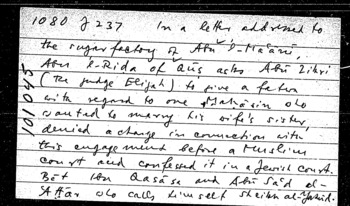 1080 J 237 In a letter addressed to
the sugar factory of Abū 'l-Ma'ānī,
Abū l-Riḍa of Qūṣ asks Abū Zikri
(the judge Elijah) to give a fatwa
with regard to one Maḥāsin who
wanted to marry his wife's sister,
denied a change in connection with
this engagement before a Muslim
court and confessed it in a Jewish court.
Bōt Ibn Qasāsa and Abū Sa'd al-
'Aṭṭār who calls himself Sheikh al-Yahūd.
101045